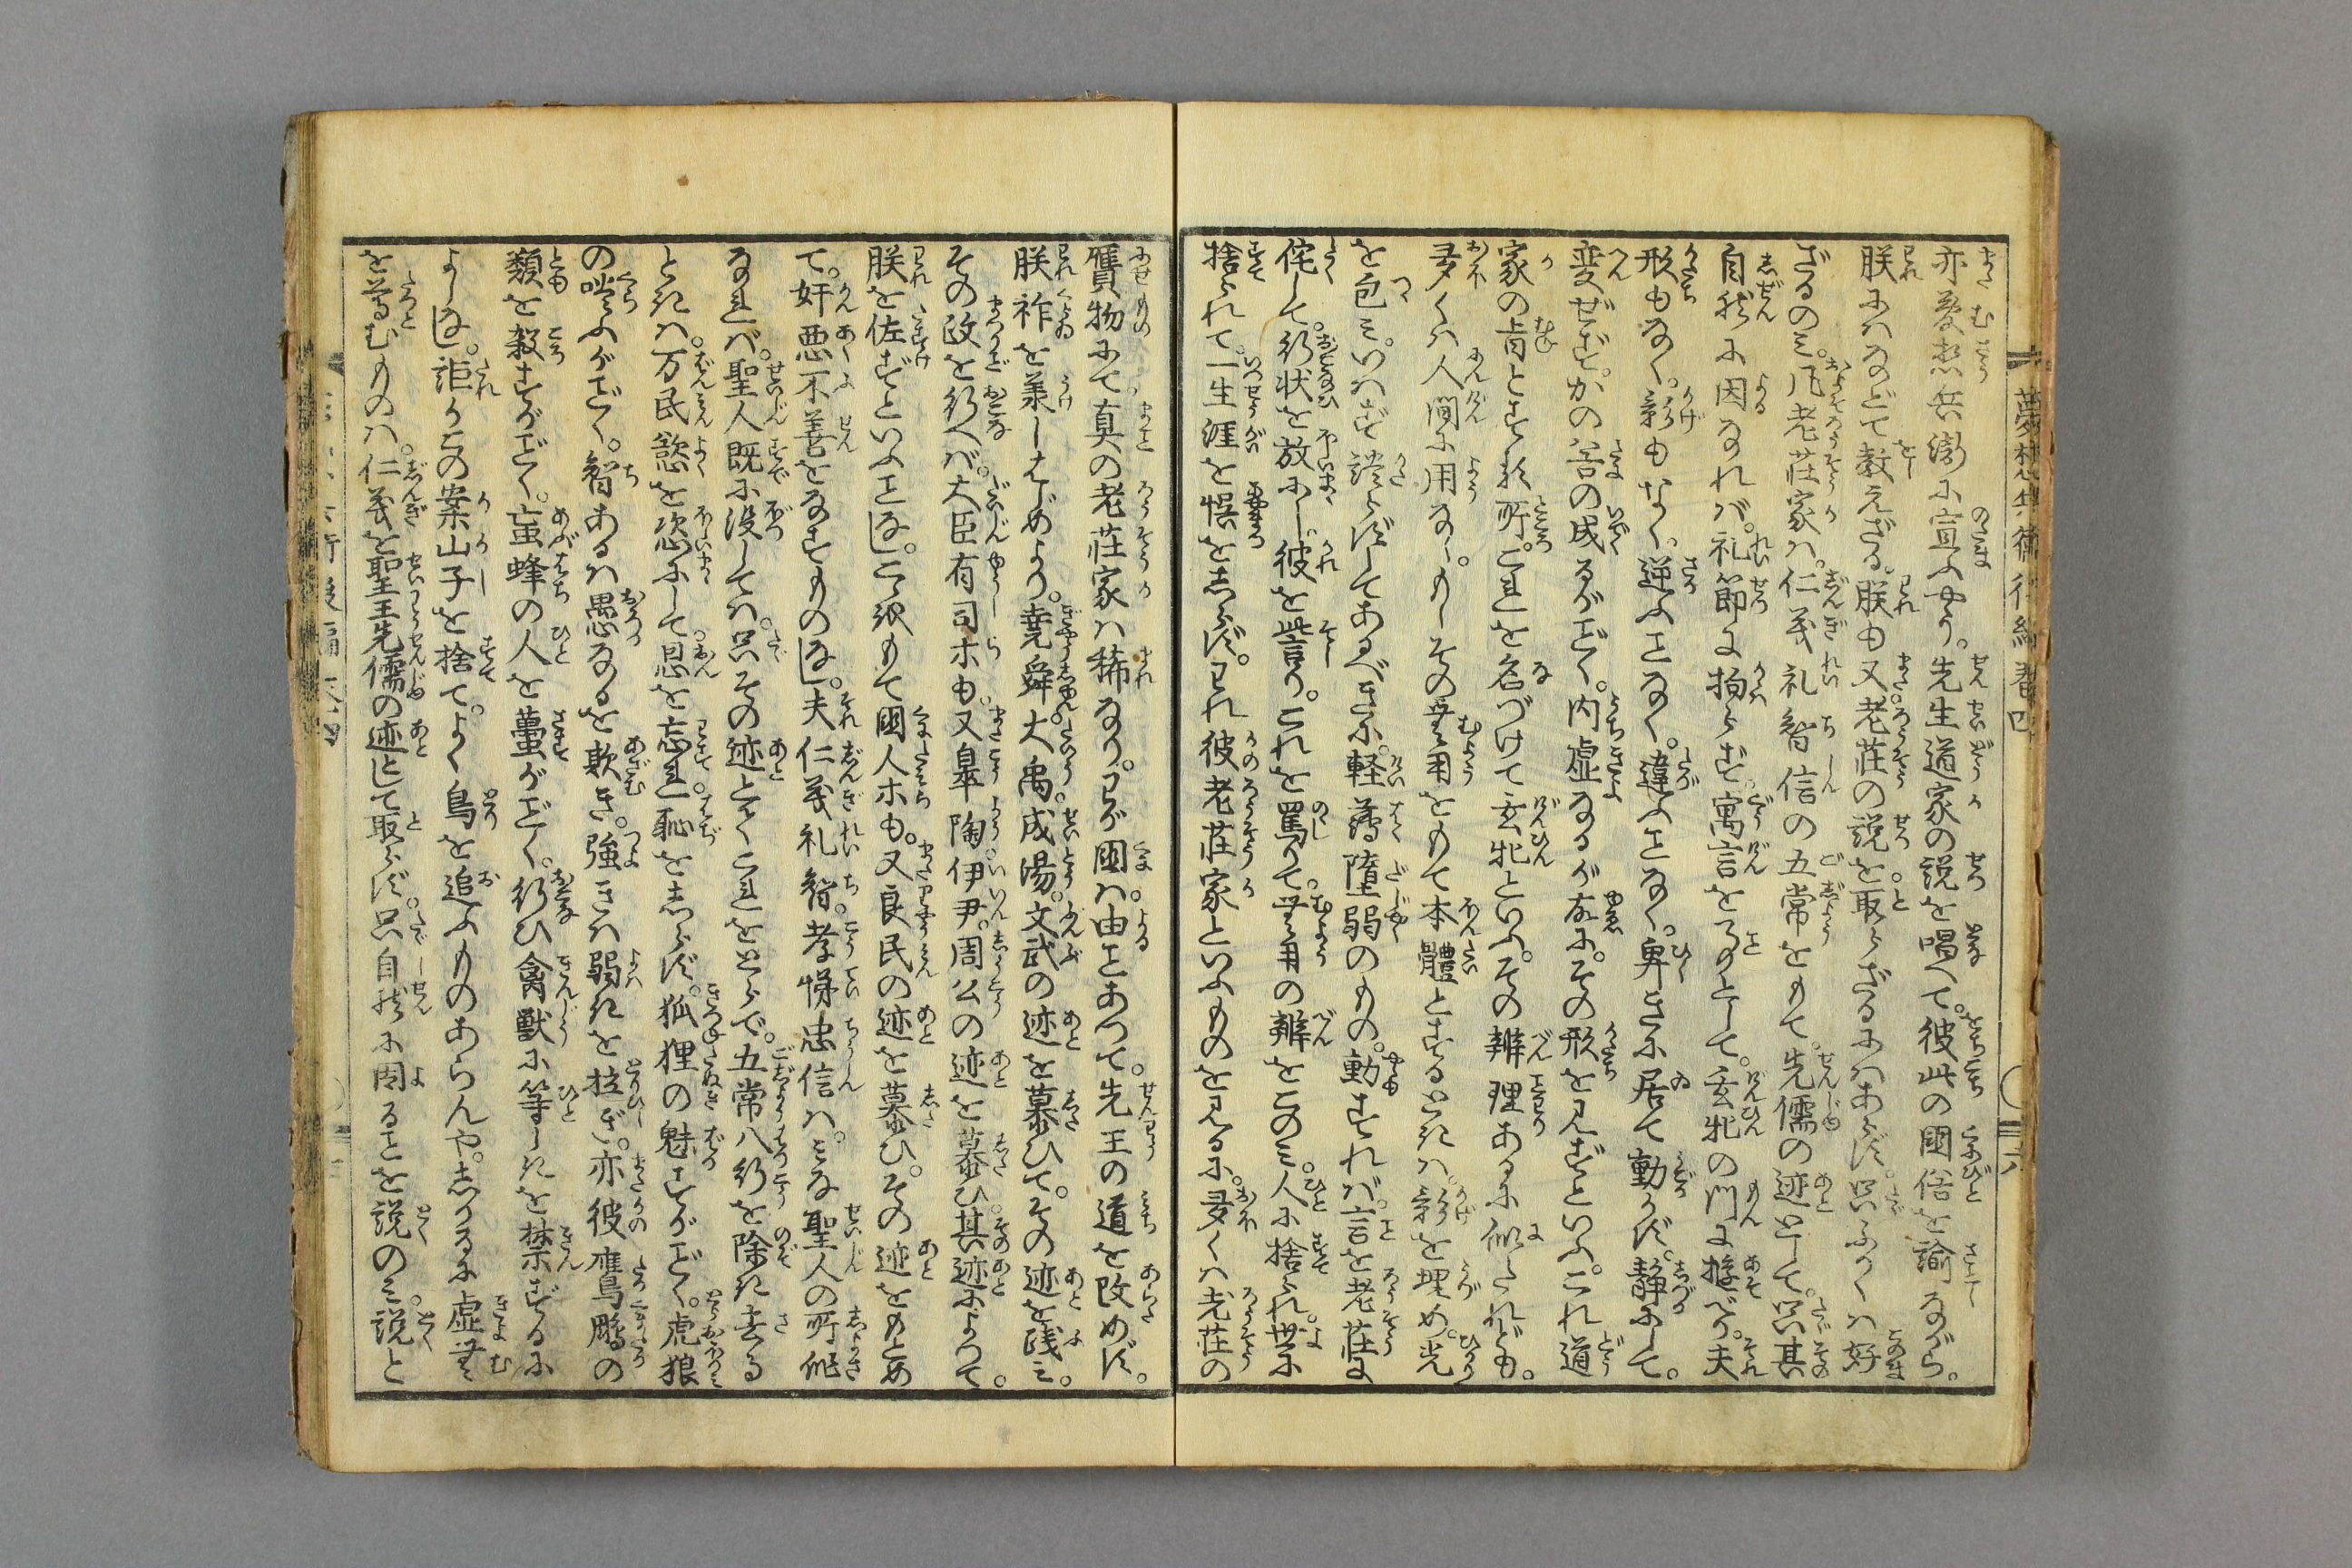 亦夢想兵衛に宣ふやう。先生道家の説を唱へて。彼此の國俗を諭しながら。
朕にはなどて教えざる。朕も又老荘の説を取らざるにはあらず。只ふかくは好
ざるのミ。凡老荘家は。仁義礼智信の五常をもて。先儒の迹として。只其
自然に因なれバ。礼節に拘らず。寓言をことゝして。玄牝の門に遊べり。夫
形もなく。影もなく。逆ふことなく。違ふことなく。卑きに居て動かず。静にして。
変ぜず。かの谷の成るがごとく。内虚なるが故に。その形を見ずといふ。これ道
家の旨とする所。これを名づけて玄牝といふ。その辨理あるに似たれども。
多くは人間に用なし。もしその無用をもて本體とするときは。影を埋め。光
を包ミ。いはず語らずしてあるべきに。軽薄堕弱のもの。動すれバ。言を老荘に
侘して。行状を放にし。彼を訾り。これを罵りて。無用の辨をこのミ。人に捨られ世に
捨られて。一生涯を愰をしらず。われ彼老荘家といふものを見るに。多くは老荘の
贋物にて。真の老荘家は稀なり。わが國は。由ことあつて。先王の道を改めず。
朕祚を羕しはじめより。堯舜。大禹。成湯。文武の迹を慕ひて。その迹を践ミ。
その政を行へバ。大臣有司ホも。又皐陶。伊尹。周公の迹を慕ひ。其迹によつて。
朕を佐ずといふことなし。こゝをもて國人ホも。又良民の迹を慕ひ。その迹をもとめ
て。奸悪不善をなすものなし。夫仁義礼智。孝悌忠信は。ミな聖人の所作
なれバ。聖人既に没しては。只その迹とてこれをとらで。五常八行を除き去る
ときは。万民慾を恣にして恩を忘れ。恥をしらず。狐狸の魅すがごとく。虎狼
の啖ふがごとく。智あるは愚なるを欺き。強きは弱きを拉ぎ。亦彼鷹鵰の
類を殺すがごとく。虻蜂の人を蠆がごとく。行ひ禽獣に等しきを禁ずるに
よしなし。誰かこの案山子を捨て。よく鳥を追ふものあらんや。しかるに虚無
を尊むものは。仁義を聖王先儒の迹として取らず。只自然に因ることを説のミ。説と